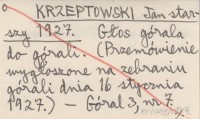 KRZEPTOWSKI Jan star-
szy 1927. Głos górala
do górali. (Przemówienie
wygłoszone na zebraniu
górali dnia 16 stycznia
1927.) — Góral 3, nr 7.